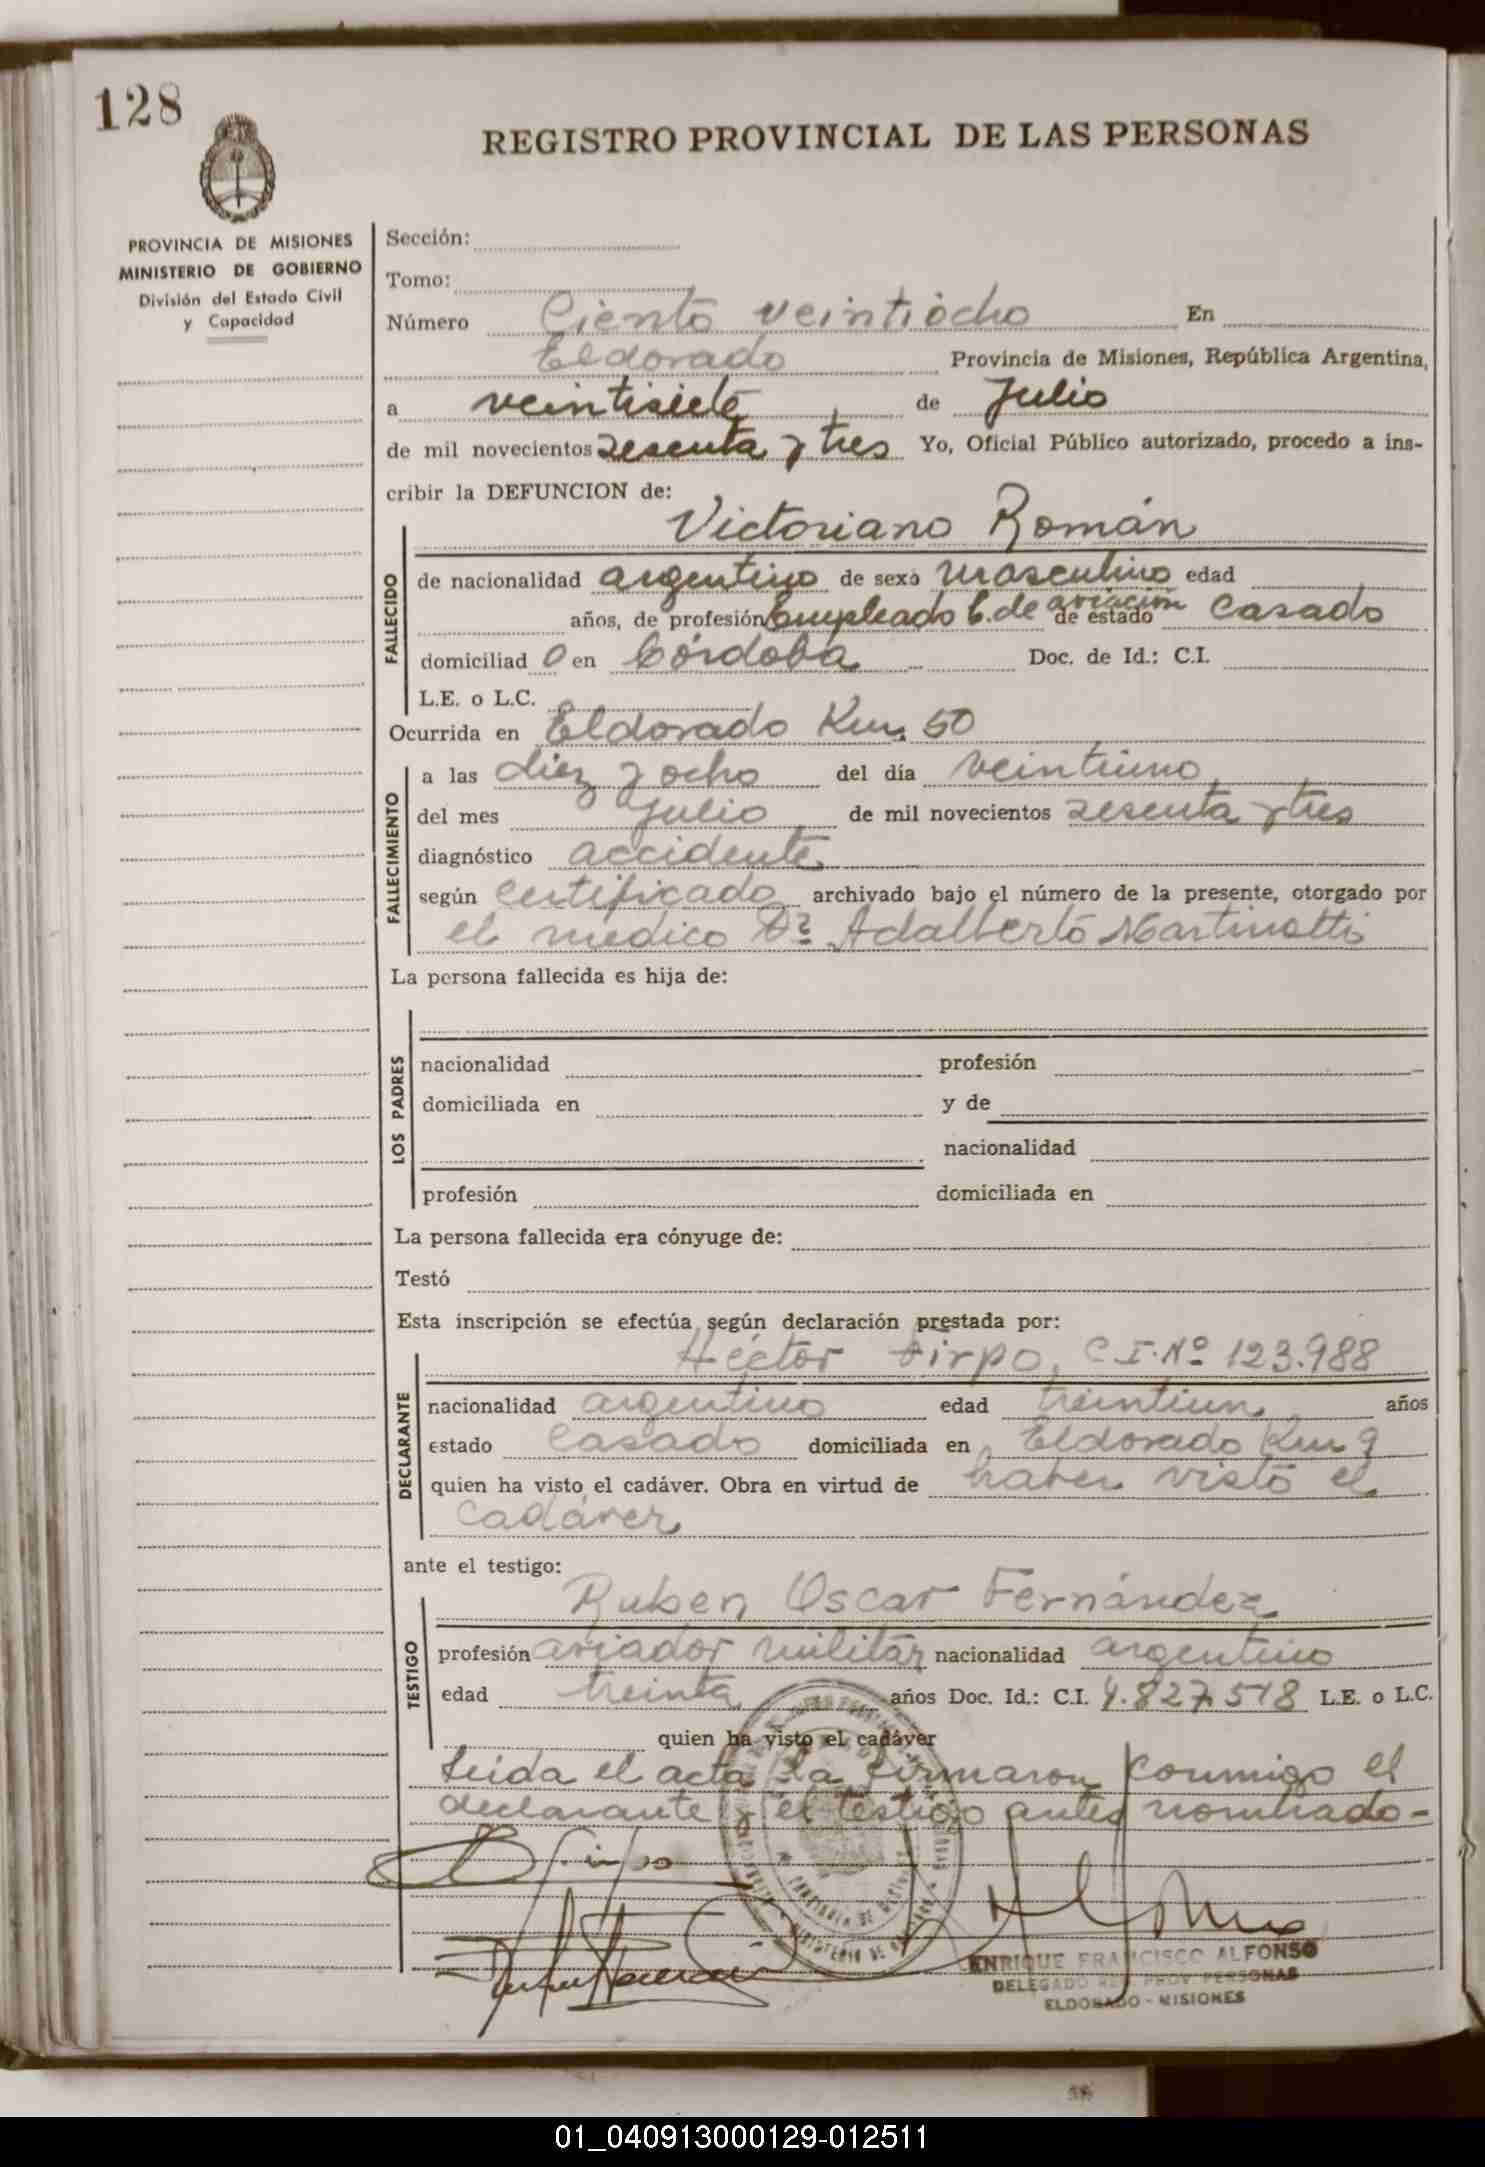 128
REGISTRO PROVINCIAL DE LAS PERSONAS
PROVINCIA DE MISIONES
MINISTERIO DE GOBIERNO
División del Estado Civil
y Capacidad
Sección:
Tomo:
Número Ciento veintiocho En
Eldorado Provincia de Misiones, República Argentina,
a veintisiete de Julio
de mil novecientos sesenta y tres Yo, Oficial Público autorizado, procedo a ins-
cribir la DEFUNCION de:
Victoriano Román
FALLECIDO
de nacionalidad argentino de sexo masculino edad
años, de profesión Empleado C. de aviación de estado Casado
domiciliad o en Córdoba Doc. de Id.: C.I.
L.E. o L.C.
Ocurrida en Eldorado Km. 50
FALLECIMIENTO
a las diez y ocho del día veintiuno
del mes Julio de mil novecientos sesenta y tres
diagnóstico accidente
según certificado archivado bajo el número de la presente, otorgado por
el medico Dr. Adalberto Martinotti
La persona fallecida es hija de:
LOS PADRES
nacionalidad profesión
domiciliada en y de
nacionalidad
profesión domiciliada en
La persona fallecida era cónyuge de:
Testó
Esta inscripción se efectúa según declaración prestada por:
Héctor Firpo, C.I. Nº 123.988
DECLARANTE
nacionalidad argentino edad treintiun años
estado Casado domiciliada en Eldorado Km 9
quien ha visto el cadáver. Obra en virtud de haber visto el
cadáver
ante el testigo:
Ruben Oscar Fernández
TESTIGO
profesión aviador militar nacionalidad argentino
edad treinta años Doc. Id.: C.I. 4.827.518 L.E. o L.C.
quien ha visto el cadáver
Leída el acta la firmaron conmigo el
declarante y el testigo antes nombrado-
ENRIQUE FRANCISCO ALFONSO
DELEGADO REG. PROV. PERSONAS
ELDORADO - MISIONES
01_040913000129-012511